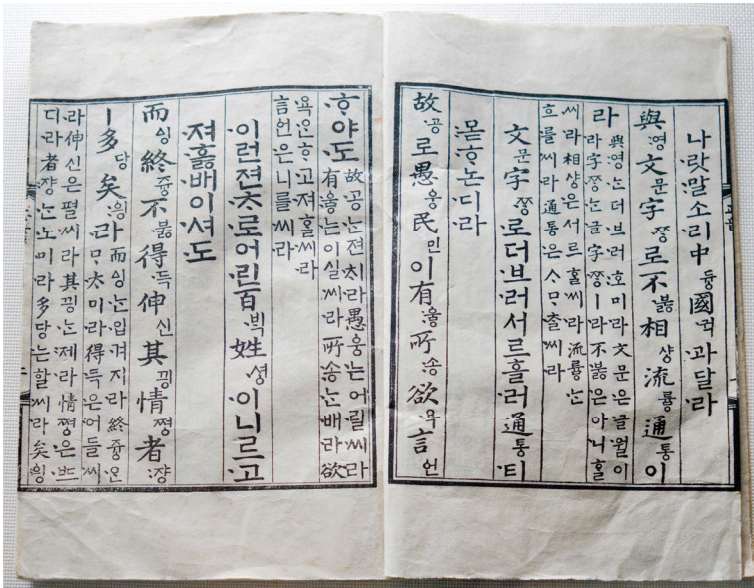 나랏말소리中듕國귁과달라
與영文문字ᄍᆞᆼ로不붏相샹流륳通통이
라
與영는더브러ᄒᆞ미라文문은글월이
라字ᄍᆞᆼ는글字ᄍᆞᆼㅣ라不붏은아니ᄒᆞᆯ
씨라相샹은서르ᄒᆞᆷ씨라流륳는
흐를씨라通통은ᄉᆞᄆᆞᄎᆞᆯ씨라
文문字ᄍᆞᆼ로더브러서르흘러通통티
몯ᄒᆞ논디라
故공로愚웅民민이有ᅌᅮᇢ所송欲욕言언
ᄒᆞ야도
故공ᄂᆞᆫ젼ᄎᆡ라愚웅는어릴씨라
有ᅌᅮᇢ는이실씨라所송ᄂᆞᆫ배라欲
욕은ᄒᆞ고져ᄒᆞᆯ씨라
言언은니를씨라
이런젼ᄎᆞ로어린百ᄇᆡᆨ姓셩이니르고
져ᄒᆞᇙ배이셔도
而ᅀᅵᆼ終즁不붏得득伸신其끵情쪙者쟝
ㅣ多당矣ᅌᅴᆼ라
而ᅀᅵᆼᄂᆞᆫ입겨지라終즁은
ᄆᆞᄎᆞ미라得득은어들씨
라伸신은펼씨라其끵ᄂᆞᆫ제라情쪙은ᄠᅳ
디라者쟝ᄂᆞᆫ노미라多당는할씨라矣ᅌᅴᆼ